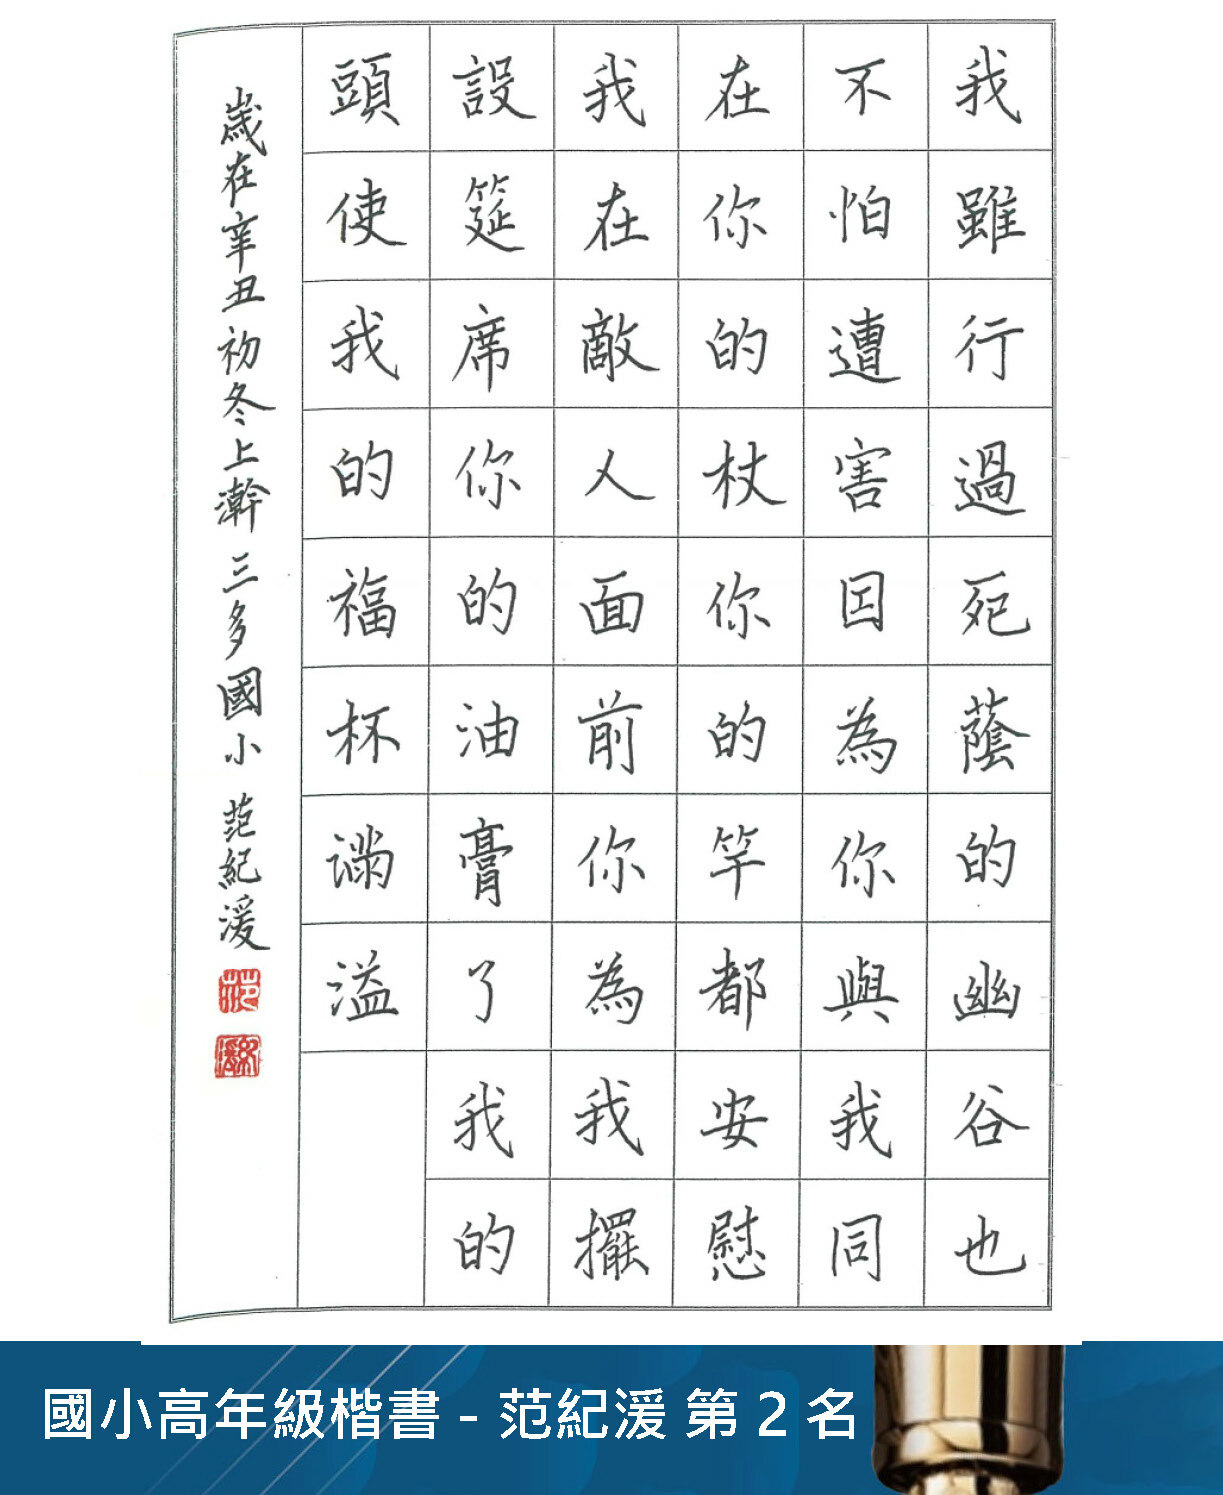 我雖行過死蔭的幽谷也
不怕遭害因為你與我同
在你的杖你的竿都安慰
我在敵人面前你為我擺
設筵席你的油膏了我的
頭使我的福杯滿溢
歲在辛丑初冬上澣三多國小范紀湲
國小高年級楷書 - 范紀湲 第 2 名